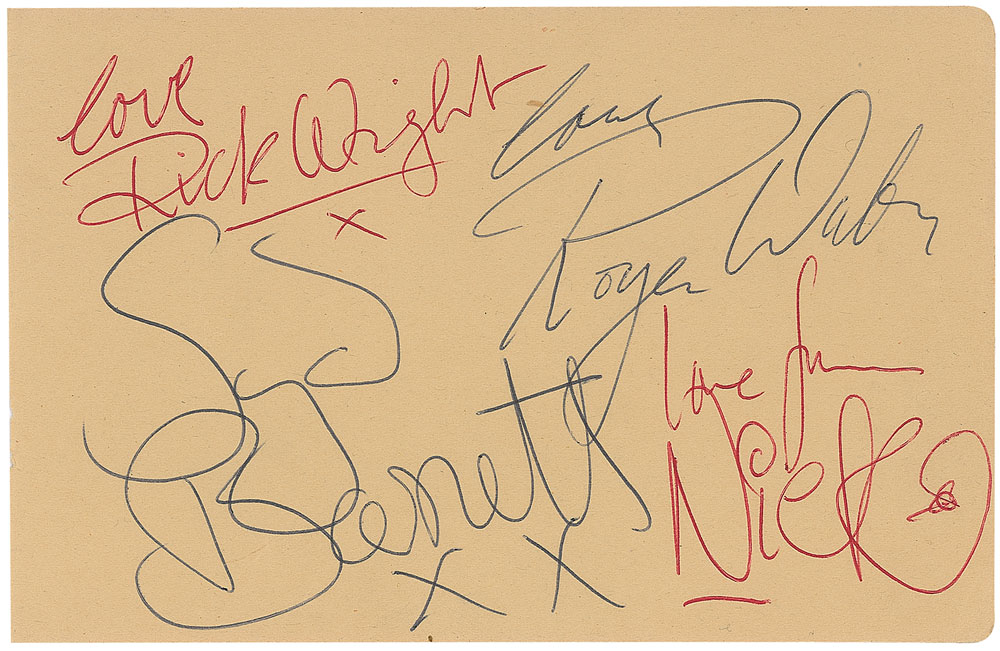 love
Rick Wright
x
love
Roger Waters
Syd
Barrett
x x
love from
Nick